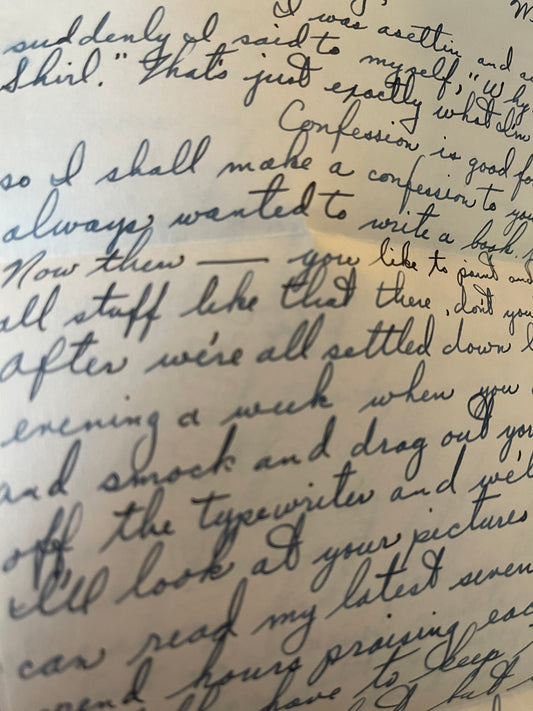 I was asettin and
suddenly I said to myself, "Why
Shirl." That's just exactly what I'm
Confession is good fo
so I shall make a confession to you
always wanted to write a book.
Now then — you like to paint and
all stuff like that there, don't you
After we're all settled down
evening a week when you
and smock and drag out you
off the typewriter and we'l
I'll look at your pictures
can read my latest seven
spend hours praising eac
have to keep